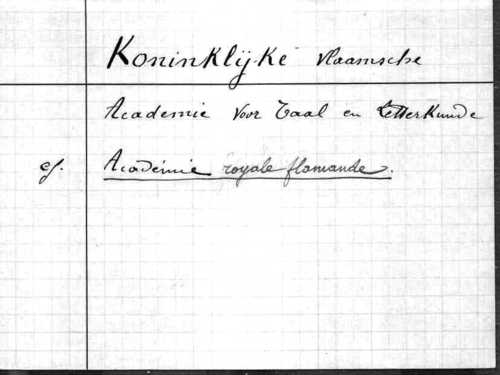 Koninklijke vlaamsche
Academie voor Taal en Letterkunde
cf. Académie royale flamande.